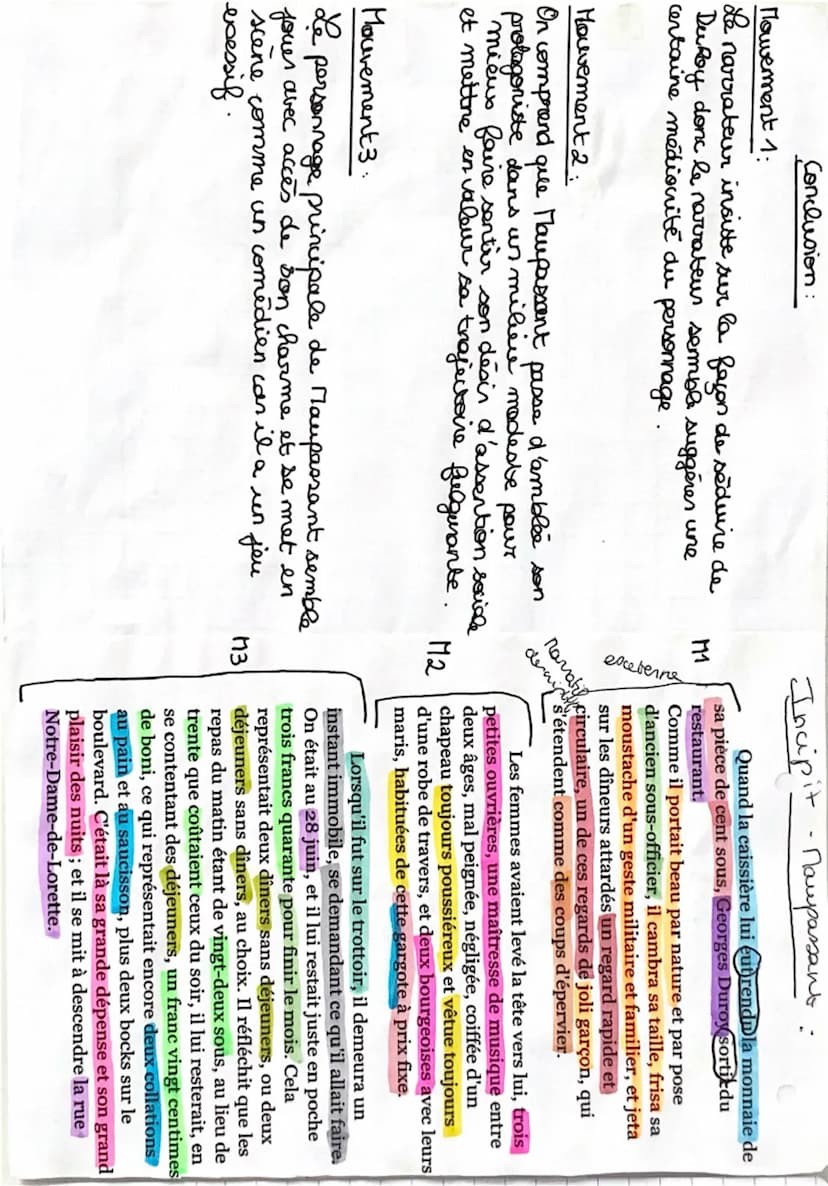 Conclusion :
Mouvement 1 :
Le narrateur insiste sur la façon de séduire de
Duroy donc le narrateur semble suggérer une
certaine médiocrité du personnage .
Mouvement 2 :
On comprend que Maupassant passe d'amblée son
protagoniste dans un milieu modeste pour
mieux faire sentir son désir d'assertion sociale
et mettre en valeur sa trajectoire fulgurante .
Mouvement 3 :
Le personnage principale de Maupassant semble
jouer avec accès de son charme et se met en
scène comme un comédien car il a un jeu
excessif .
Incipit - Maupassant :
M1
Quand la caissière lui eut rendu la monnaie de
sa pièce de cent sous, Georges Duroy sortit du
restaurant.
Comme il portait beau par nature et par pose
d'ancien sous-officier, il cambra sa taille, frisa sa
moustache d'un geste militaire et familier, et jeta
sur les dîneurs attardés un regard rapide et
circulaire, un de ces regards de joli garçon, qui
s'étendent comme des coups d'épervier.
M2
Les femmes avaient levé la tête vers lui, trois
petites ouvrières, une maîtresse de musique entre
deux âges, mal peignée, négligée, coiffée d'un
chapeau toujours poussiéreux et vêtue toujours
d'une robe de travers, et deux bourgeoises avec leurs
maris, habituées de cette gargote à prix fixe.
M3
Lorsqu'il fut sur le trottoir, il demeura un
instant immobile, se demandant ce qu'il allait faire.
On était au 28 juin, et il lui restait juste en poche
trois francs quarante pour finir le mois. Cela
représentait deux dîners sans déjeuners, ou deux
déjeuners sans dîners, au choix. Il réfléchit que les
repas du matin étant de vingt-deux sous, au lieu de
trente que coûtaient ceux du soir, il lui resterait, en
se contentant des déjeuners, un franc vingt centimes
de boni, ce qui représentait encore deux collations
au pain et au saucisson, plus deux bocks sur le
boulevard. C'était là sa grande dépense et son grand
plaisir des nuits ; et il se mit à descendre la rue
Notre-Dame-de-Lorette.